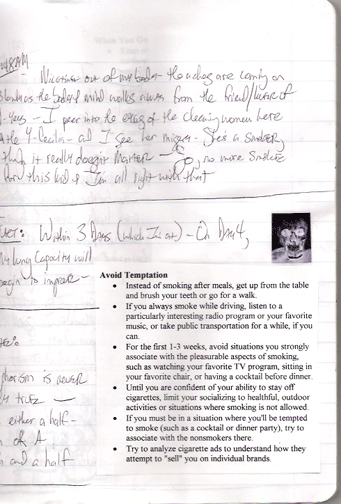 Nicotine out of my body - the aches are coming on
as the body & mind walks away from the friend/lover of
Years - I peer into the eyes of the cleaning women here
the and I see her misery - She's a smoker,
it really doesn't matter - So, no more smoke
this kid & I'm all right with that
Within 3 Days (which I'm at) - On Day 4,
My lung capacity will
begin to improve -
Avoid Temptation
• Instead of smoking after meals, get up from the table
and brush your teeth or go for a walk.
• If you always smoke while driving, listen to a
particularly interesting radio program or your favorite
music, or take public transportation for a while, if you
can.
• For the first 1-3 weeks, avoid situations you strongly
associate with the pleasurable aspects of smoking,
such as watching your favorite TV program, sitting in
your favorite chair, or having a cocktail before dinner.
• Until you are confident of your ability to stay off
cigarettes, limit your socializing to healthful, outdoor
activities or situations where smoking is not allowed.
• If you must be in a situation where you'll be tempted
to smoke (such as a cocktail or dinner party), try to
associate with the nonsmokers there.
• Try to analyze cigarette ads to understand how they
attempt to "sell" you on individual brands.
is never
either a half-
of A
and a half